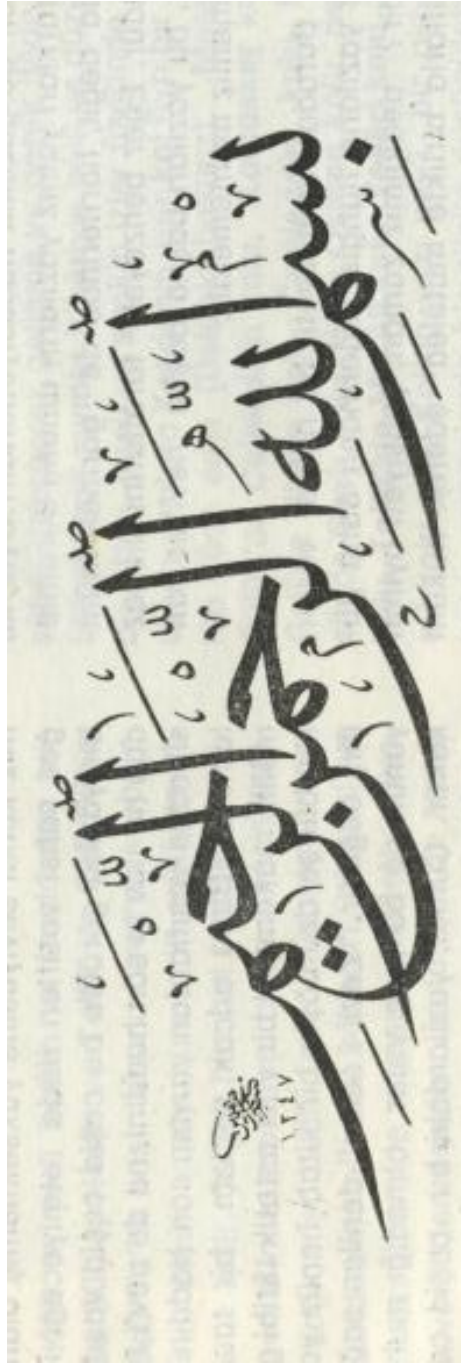 بِسْمِ اللّٰهِ الرَّحْمٰنِ الرَّحِيمِ
١٣٤٧